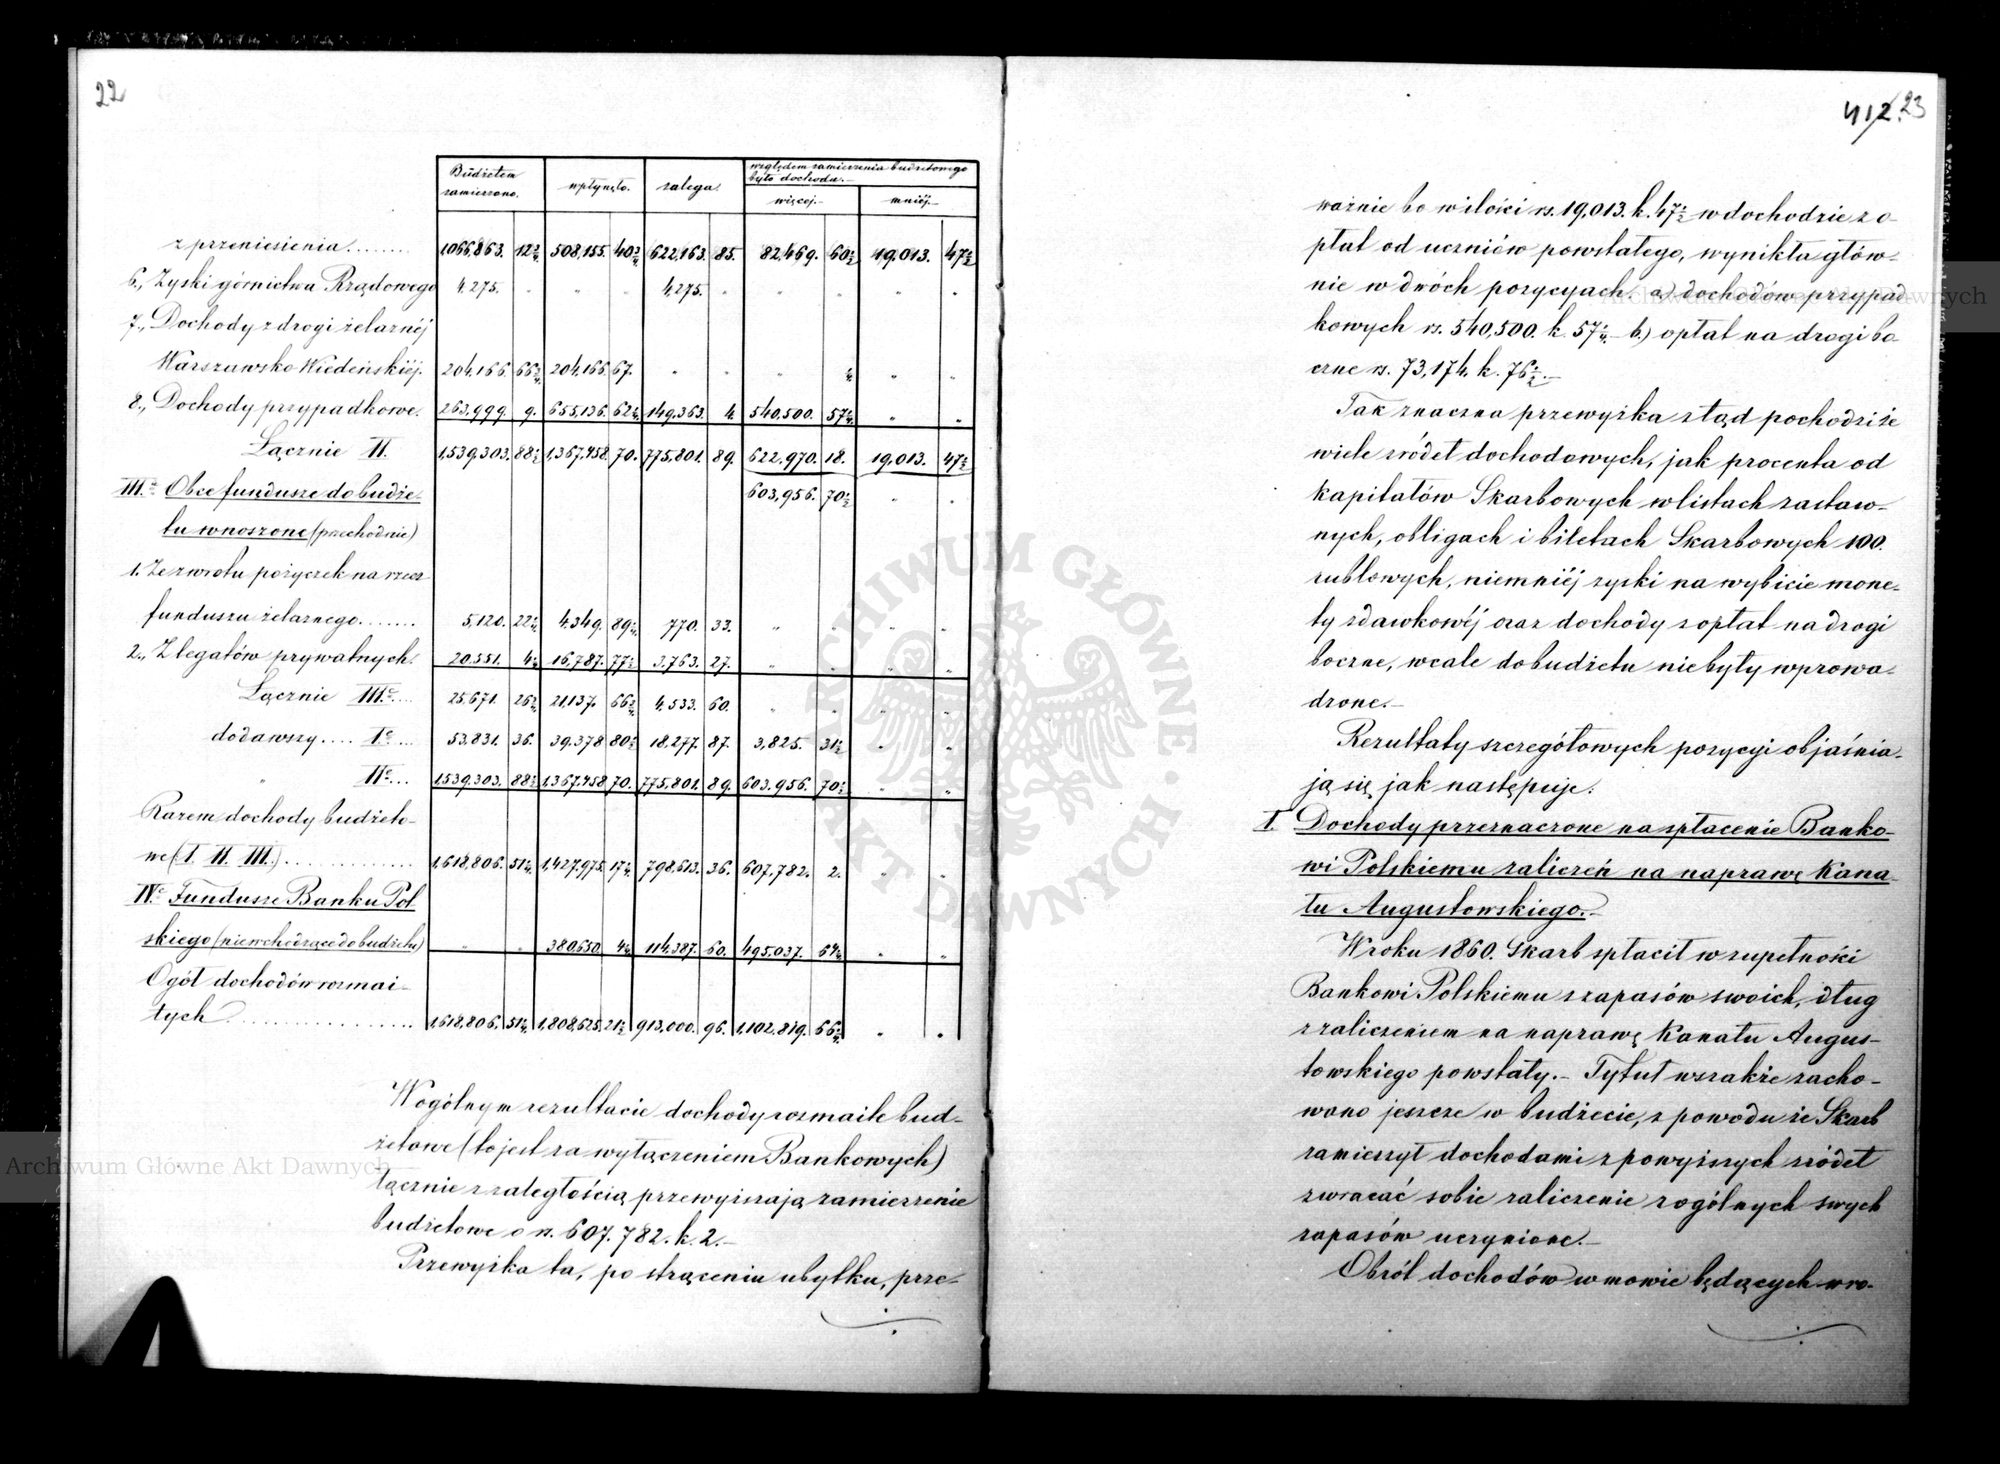 22
Budżetem zamierzono. wpłynęło. zalega. względem zamierzenia budżetowego było dochodu.
więcej. mniej.
z przeniesienia 1066,863. 12 2/4 508,155. 40 3/4 622,163. 85. 82,469. 60 1/2 19,013. 47 1/2
6., Zyski górnictwa Rządowego 4,275. " " " 4,275. " " " " "
7., Dochody z drogi żelaznéj
Warszawsko Wiedeńskiéj. 204,166. 204,166 67. " " " " "
8., Dochody przypadkowe. 263,999. 9. 655,136. 62 1/4 149,363. 4. 540,500. 57 1/4 " "
Łącznie II. 1,539,303. 88 1/2 1,367,458. 70. 775,801. 89. 622,970. 18. 19,013. 47 1/2
603,956. 70 1/2 " "
III.e Obce fundusze do budże-
tu wnoszone (przechodnie)
1. Ze zwrotu pożyczek na rzecz
funduszu żelaznego 5,120. 4,349. 770. 33. " " " "
2., Z legatów prywatnych. 20,551. 16,787. 3,763. 27. " " " "
Łącznie III.e 25,671. 21,137. 4,533. 60. " " " "
dodawszy I.e 53,831. 36. 39,378 80 1/2 18,277. 87. 3,825. 31 1/2 " "
" II.e 1539,303. 88 1/2 1,367,458 70. 775,801. 89. 603,956. 70 1/2 " "
Razem dochody budżeto-
we (I. II. III.) 1,618,806. 51 1/4 1,427,975. 17 1/4 798,613. 36. 607,782. 2. " "
IV.e Fundusze Banku Pol
skiego (niewchodzące do budżetu) " " 380,650. 114,387. 60. 495,037. " "
Ogół dochodów rozmai-
tych 1,618,806. 51 1/4 1,808,625. 21 1/2 913,000. 96. 1,102,819. " "
W ogólnym rezultacie dochody rozmaite bud-
żetowe (to jest za wyłączeniem Bankowych)
łącznie z zaległością przewyższają zamierzenie
budżetowe o rs. 607,782. k. 2.—
Przewyżka ta, po strąceniu ubytku, prze-
412. 23
ważnie bo w ilości rs. 19,013. k. 47 1/2 w dochodzie z o-
płat od uczniów powstałego, wynikła głów-
nie w dwóch pozycyach: a) dochodów przypad
kowych rs. 540,500. k. 57 1/4 b.) opłat na drogi bo-
czne rs. 73,174. k. 76 1/2.—
Tak znaczna przewyżka ztąd pochodzi że
wiele źródeł dochodowych, jak procenta od
kapitałów Skarbowych w listach zastaw-
nych, obligach i biletach Skarbowych 100.
rublowych, niemniéj zyski na wybicie mone-
ty zdawkowéj oraz dochody z opłat na drogi
boczne, wcale do budżetu niebyły wprowa-
dzone.—
Rezultaty szczegółowych pozycyi objaśnia-
ją się jak następuje:
I. Dochody przeznaczone na spłacenie Banko-
wi Polskiemu zaliczeń na naprawę Kana-
łu Augustowskiego.—
W roku 1860. Skarb spłacił w zupełności
Bankowi Polskiemu z zapasów swoich, dług
z zaliczeniem na naprawę Kanału Augus-
towskiego powstały.— Tytuł wszakże zacho-
wano jeszcze w budżecie, z powodu że Skarb
zamierzył dochodami z powyższych źródeł
zwracać sobie zaliczenie z ogólnych swych
zapasów uczynione.—
Obrót dochodów w mowie będących w ro-
Archiwum Główne Akt Dawnych
Archiwum Główne Akt Dawnych
ARCHIWUM GŁÓWNE AKT DAWNYCH